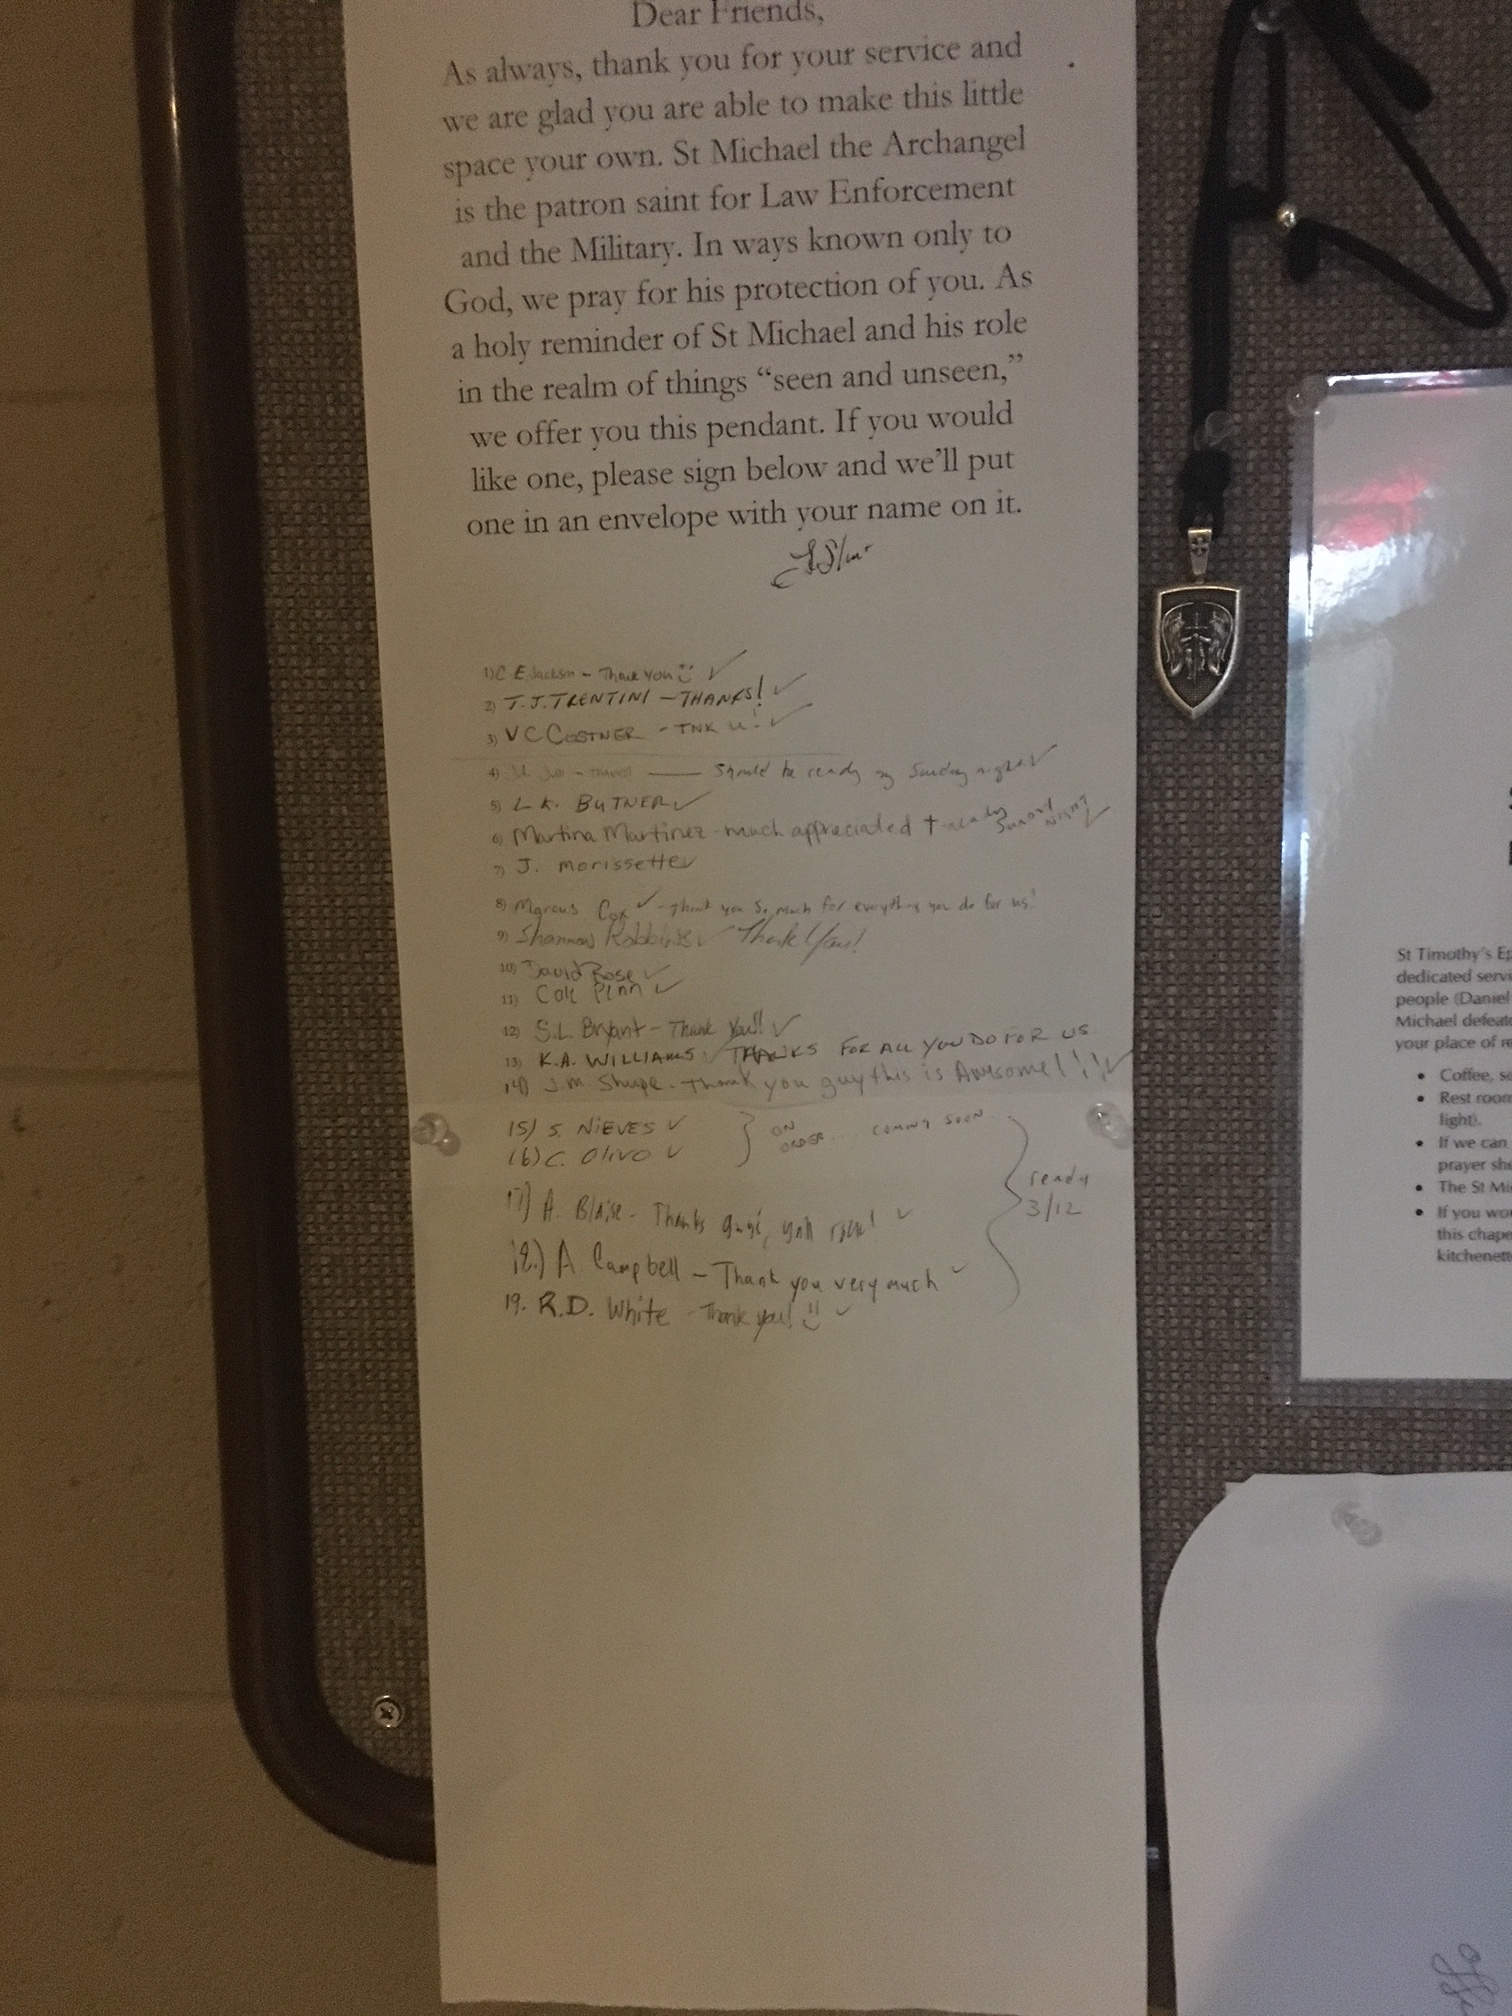 Dear Friends,
As always, thank you for your service and
we are glad you are able to make this little
space your own. St Michael the Archangel
is the patron saint for Law Enforcement
and the Military. In ways known only to
God, we pray for his protection of you. As
a holy reminder of St Michael and his role
in the realm of things “seen and unseen,”
we offer you this pendant. If you would
like one, please sign below and we’ll put
one in an envelope with your name on it.
1) C E Jackson - Thank you
2) T.J. TRENTINI - THANKS!
3) V C COSTNER - TNK U!
4) Should be ready by Sunday night
5) L K. BUTNER
6) Martina Martinez - much appreciated ready Sunday NIGHT
7) J. morissette
8) Marcus Cox - Thank you so much for everything you do for us!
9) Shannon Robbins Thank You!
10) David Rose
11) Cole Penn
12) S.L. Bryant - Thank you!!
13) K.A. WILLIAMS THANKS FOR ALL YOU DO FOR US
14) J.M. Shupe - Thank you guy this is Awesome!!!
15) S. NIEVES
16) C. Olivo
ON ORDER... COMING SOON
17) A. Blaise - Thanks guys, yall rock!
18.) A Campbell - Thank you very much
19. R.D. White - Thank you!
ready
3/12
St Timothy’s
dedicated
people (Daniel
Michael
your place of
• Coffee,
• Rest
light).
• If we can
prayer
• The St
• If you
this